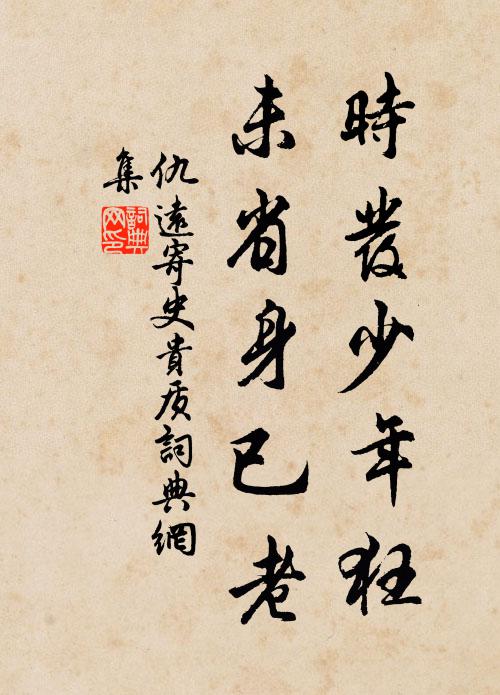 時發少年狂
未省身已老
仇遠寄史貴质詞典網
集
詞典
网印